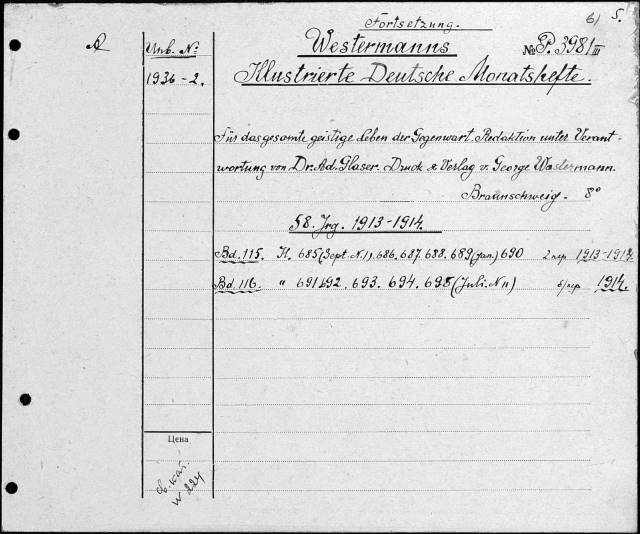 Fortsetzung.
61 S.
A
Unb. №
Westermanns
№ P. 3981 III
1936-2.
Illustrierte Deutsche Monatshefte.
Für das gesamte geistige Leben der Gegenwart. Redaktion unter Verant-
wortung von Dr. Ad. Glaser. Druck & Verlag v. George Westermann.
Braunschweig. 8°
58. Jrg. 1913-1914.
Bd. 115. H. 685 (Sept. N.1). 686. 687. 688. 689 (Jan.) 690 2 пер 1913-1914.
Bd. 116. " 691 692. 693. 694. 695 (Juli. N 11) б/пер 1914.
Цена